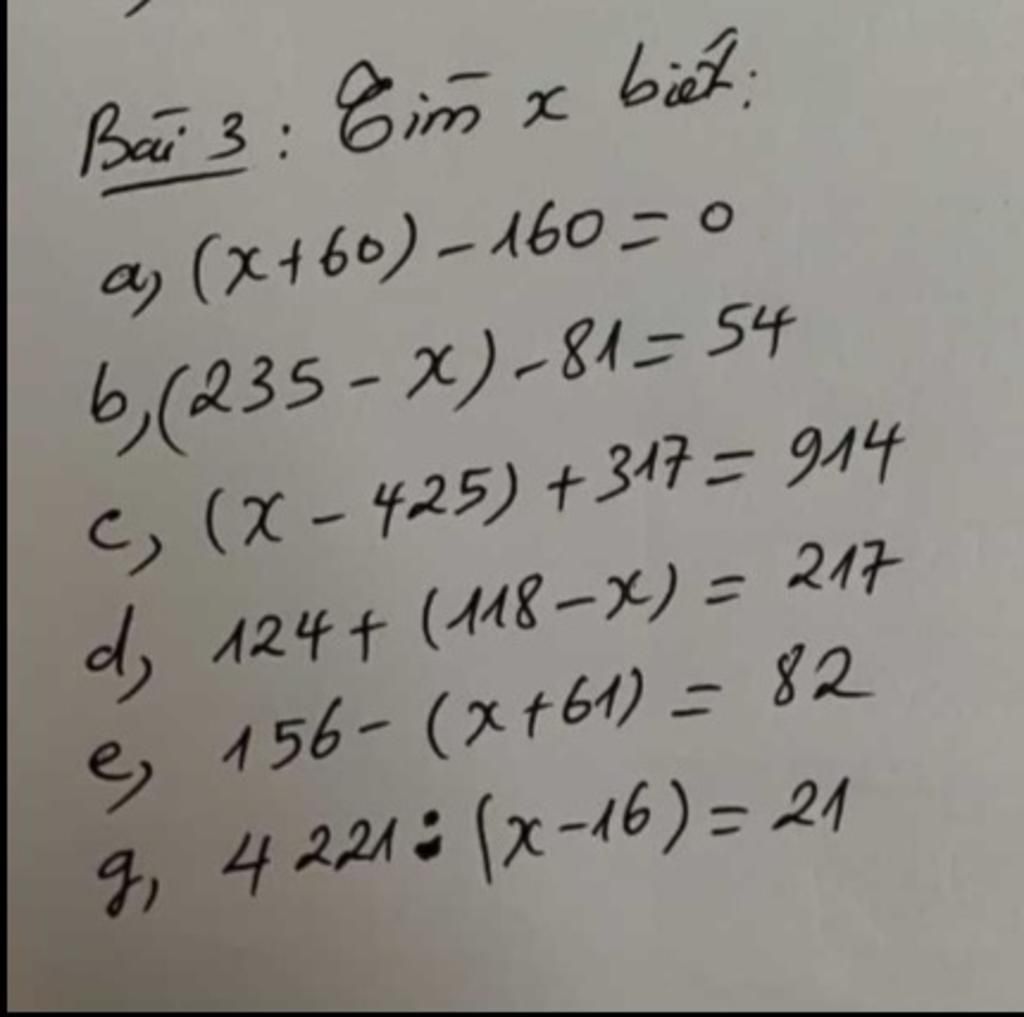 Bài 3: Tìm x biết:
a, (x+60) - 160 = 0
b, (235 - x) - 81 = 54
c, (x - 425) + 317 = 914
d, 124 + (118 - x) = 217
e, 156 - (x + 61) = 82
g, 4221 : (x - 16) = 21